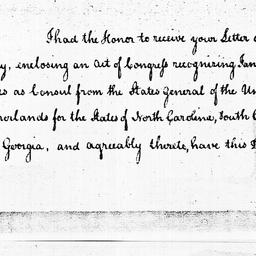 I had the Honor to receive your Letter
y, enclosing an Act of Congress recognizing
es as Consul from the States General of the Un
herlands for the States of North Carolina, South C
Georgia, and agreeably thereto, have this